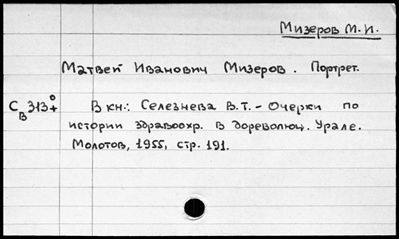 Мизеров М.И.
Матвей Иванович Мизеров. Портрет.
В кн.: Селезнева В.Т. - Очерки по
истории здравоохр. в дореволюц. Урале.
Молотов, 1955, стр. 191.